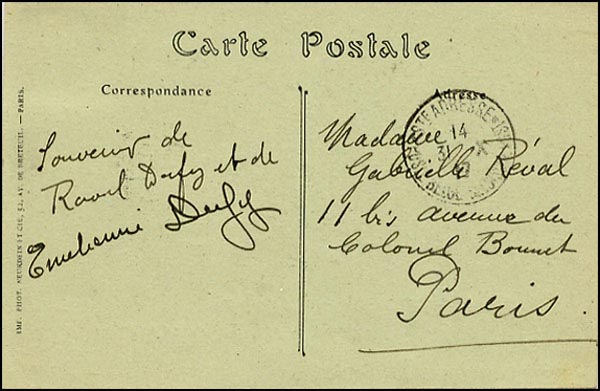 Carte Postale
Correspondance
Adresse
Souvenir de
Raoul Dufy et de
Emilienne Dufy
Madame
Gabrielle Réval
11 bis avenue du
Colonel Bonnet
Paris
STE ADRESSE
14
IMP. PHOT. NEURDEIN ET CIE, 52, AV. DE BRETEUIL. — PARIS.